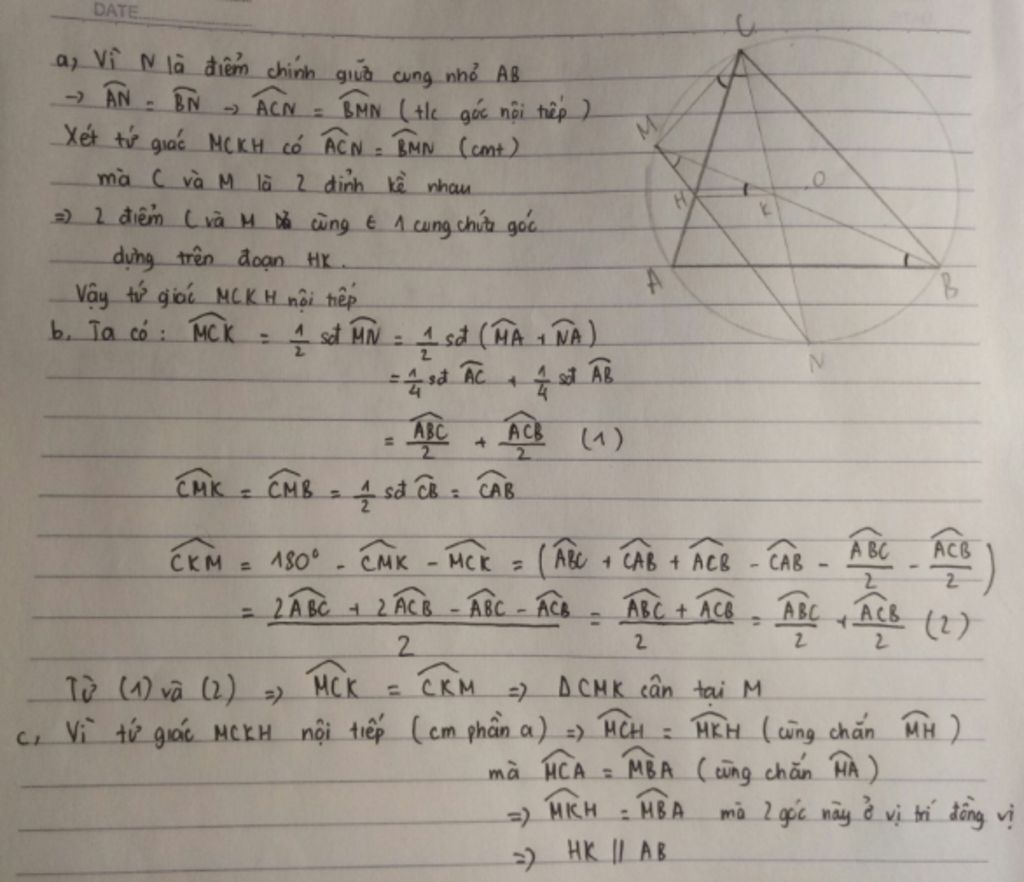 DATE
a, Vì N là điểm chính giữa cung nhỏ AB
→ AN̂ = BN̂ → ACN̂ = BMN̂ (t/c góc nội tiếp)
Xét tứ giác MCKH có ACN̂ = BMN̂ (cmt)
mà C và M là 2 đỉnh kề nhau
=> 2 điểm C và M cùng ∈ 1 cung chứa góc
dựng trên đoạn HK.
Vậy tứ giác MCKH nội tiếp
b. Ta có: MCK̂ = 1/2 sđ MN̂ = 1/2 sđ (MÂ + NÂ)
= 1/4 sđ AĈ + 1/4 sđ AB̂
= ABĈ/2 + ACB̂/2 (1)
CMK̂ = CMB̂ = 1/2 sđ CB̂ = CAB̂
CKM̂ = 180° - CMK̂ - MCK̂ = (ABĈ + CAB̂ + ACB̂ - CAB̂ - ABĈ/2 - ACB̂/2)
= (2ABĈ + 2ACB̂ - ABĈ - ACB̂)/2 = (ABĈ + ACB̂)/2 = ABĈ/2 + ACB̂/2 (2)
Từ (1) và (2) => MCK̂ = CKM̂ => ΔCMK cân tại M
c, Vì tứ giác MCKH nội tiếp (cm phần a) => MCĤ = MKĤ (cùng chắn MĤ)
mà MCÂ = MBÂ (cùng chắn MÂ)
=> MKĤ = MBÂ mà 2 góc này ở vị trí đồng vị
=> HK || AB
C
M
H
K
O
A
B
N